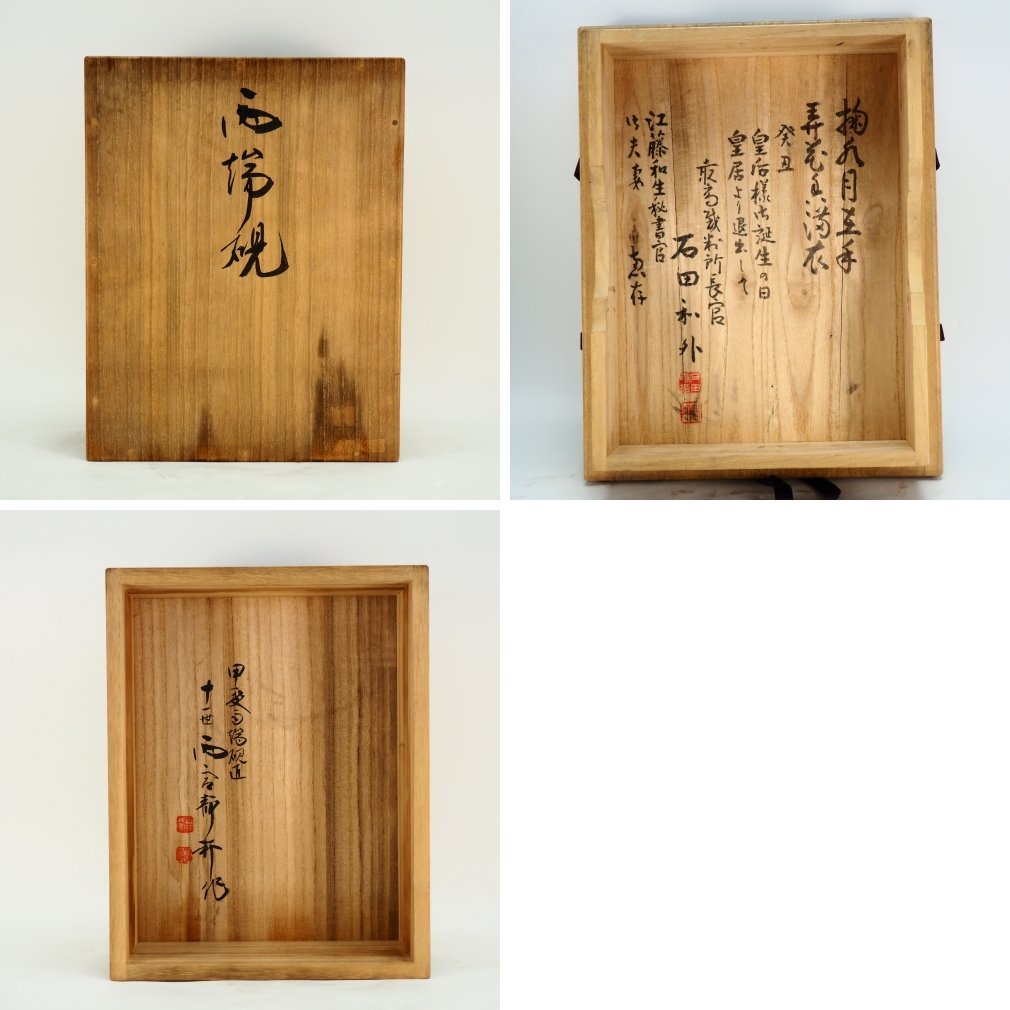 雨端硯
掬水月在手
弄花香満衣
癸丑
皇后様御誕生の日
皇居より退出して
最高裁判所長官
石田和外
江藤和生秘書官
御夫妻 恵存
甲斐雨端硯匠
十一世 雨宮静軒作